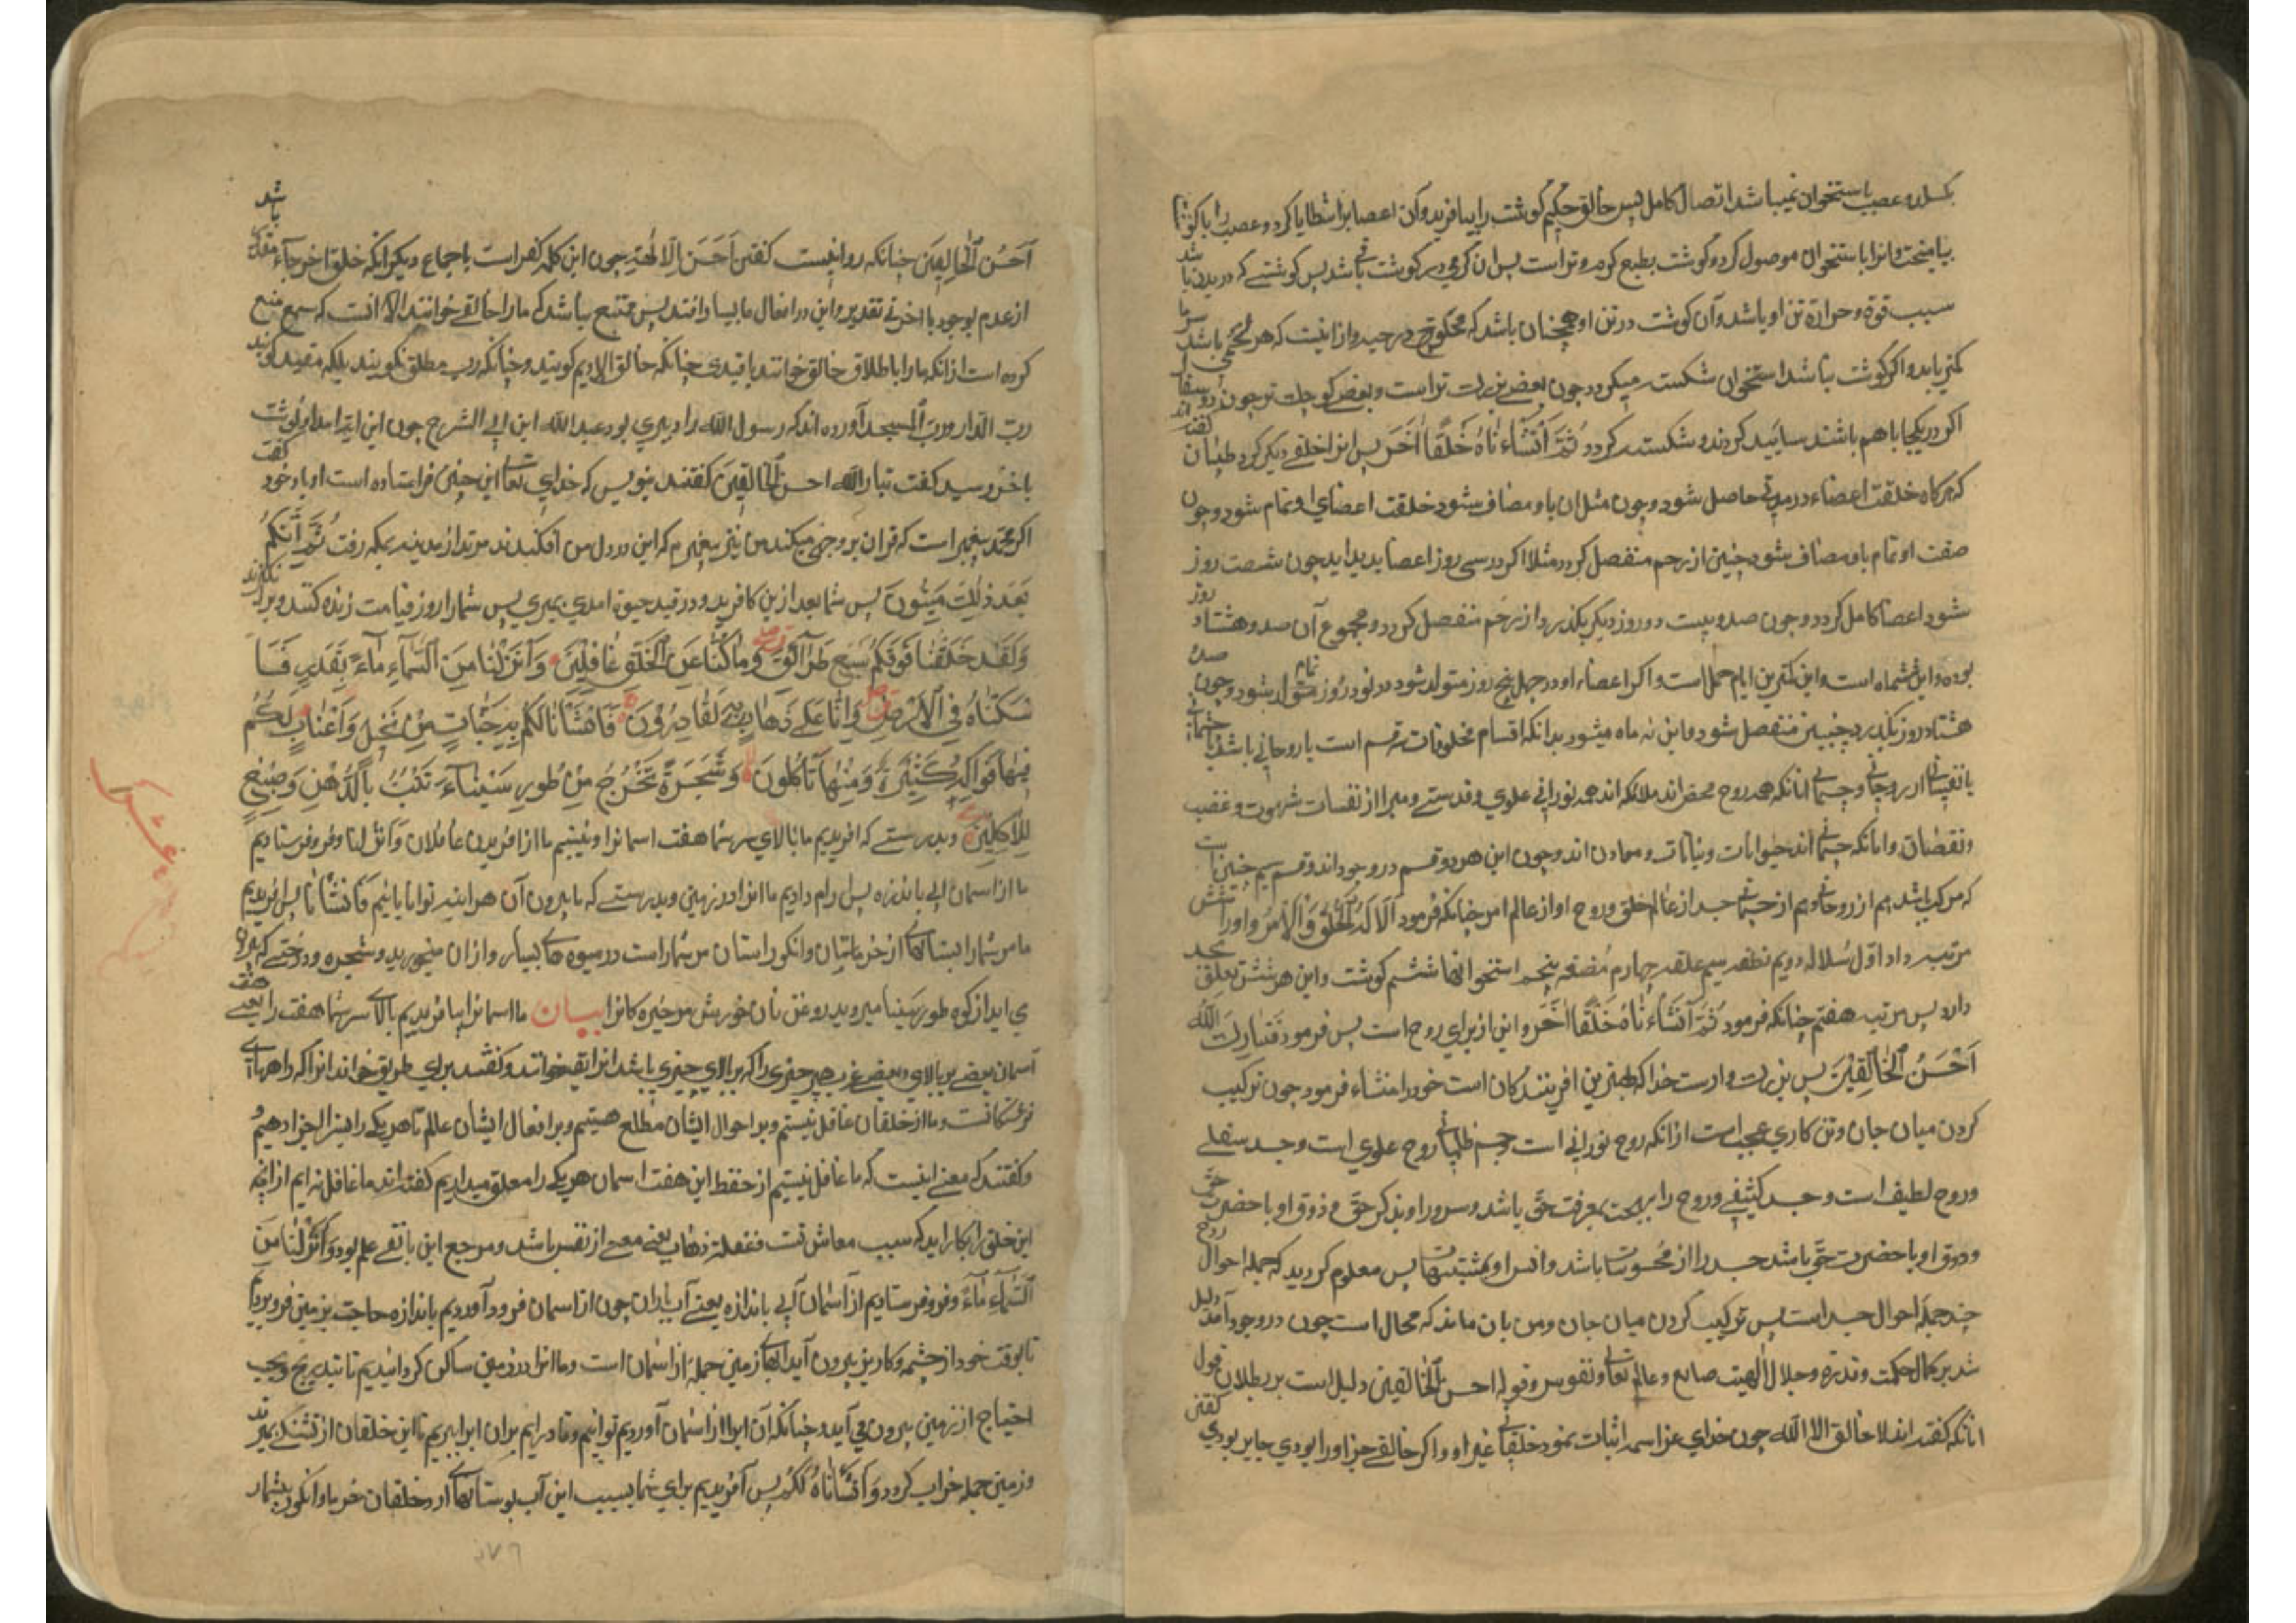 بکسلد و عصب باستخوان نمیباشد اتصال کامل پس خالق حکیم کوشت را بیافرید و آن اعصابرا شظایا کرد و عصب را با کوشت
بیامیخت و انرا باستخوان موصول کرد و کوشت بطبع کرم و تر است پس ان کرمی در کوشت باقی باشد پس کوشتی که در بدن باشد
سبب قوة و حرارة تن او باشد و آن کوشت در تن او همچنان باشد که در جید و از اینست که هر باشد سرما
کمتر یابد و اکر کوشت نباشد استخوان شکسته میکردد چون بعضی بزرک تر است و بعضی کوچک تر چون دو سفال
اکر در یکجا باهم باشند ساییده کردند و شکسته کردد ثُمَّ اَنْشَاْنَاهُ خَلْقًا اٰخَرَ پس انرا خلقی دیکر کرد طبیبان کفته اند
که هرکاه خلقت اعضاء در مدتی حاصل شود و چون مثل ان باو مضاف شود خلقت اعضای او تمام شود و چون
ضعف او تمام باو مضاف شود جنین از رحم منفصل کردد مثلا اکر در سی روز اعضا پدید اید چون شصت روز
شود اعضا کامل کردد و چون صد و بیست روز دیکر بکذرد از رحم منفصل کردد و مجموع آن صد و هشتاد روز
بوده و این ششماه است و این کمترین ایام حمل است و اکر اعضاء او در چهل پنج روز متولد شود در نود روز تمام شود و چون صد
هشتاد روز بکذرد جنین منفصل شود و این نه ماه میشود بدانکه اقسام مخلوقات سه قسم است یا روحانی باشد یا جسمانی
یا از روحانی و جسمانی انانکه همه روح محض اند ملائکه اند همه نورانی علوی و قدسی و مبرا از شهوت و غضب
و نقصان و انانکه جسمانی اند حیوانات و نباتات و معادن اند و چون این هر دو قسم در وجود اند و قسم سیم چنین است
که مرکب باشد هم از روحانی و هم از جسمانی جسد از عالم خلق و روح او از عالم امر چنانکه فرمود اَلَا لَهُ الْخَلْقُ وَالْاَمْرُ و اورا شش
مرتبه داد اول سُلاله دویم نطفه سیم علقه چهارم مُضغه پنجم استخوانها ششم کوشت و این هر شش تعلق بجسد
دارد پس مرتبه هفتم چنانکه فرمود ثُمَّ اَنْشَاْنَاهُ خَلْقًا اٰخَرَ و این از برای روح است پس فرمود فَتَبَارَكَ اللّٰهُ
اَحْسَنُ الْخَالِقِیْنَ پس بزرک وارست خدا که بهترین افرینندکان است خود را منشاء فرمود چون ترکیب
کردن میان جان و تن کاری عجیب است از انکه روح نورانی است و جسم ظلمانی روح علوی است و جسد سفلی
و روح لطیف است و جسد کثیف و روح را بهجت بمعرفت حق باشد و سرور او بذکر حق و ذوق او با حضرت حق
و ذوق او با حضرت حق باشد جسد را از محسوسات باشد و انس او بمشتهیات پس معلوم کردید که جمله احوال روح
ضد جمله احوال جسد است پس ترکیب کردن میان جان و تن بان ماند که محال است چون در وجود آمد دلیل
شد بر کمال حکمت و قدرة و جلال الهیت صانع و عالم تعالی و تقدس و قوله احسن الخالقین دلیل است بر بطلان قول
انانکه کفته اند لا خالق الا الله چون خدای عز اسمه اثبات نمود خالقانی غیر او و اکر خالقی جز اورا نبودی جایز نبودی کفتن
اَحْسَنُ الْخَالِقِیْنَ چنانکه روا نیست کفتن اَحْسَنُ الْاٰلِهَةِ چون این کلمه کفر است باجماع دیکر انکه خلق اخراج مقدر باشد
از عدم بوجود یا اخر تقدیر و این در افعال ما بسیار افتد پس ممتنع نباشد که مارا خالق خوانند الا انست که سمع منع
کرده است از انکه مارا باطلاق خالق خوانند یا قیدی چنانکه خالق الادیم کویند و چنانکه رب مطلق نکویند بلکه مقید کویند
رب الدار و رب المسجد آورده اند که رسول الله را دبیری بود عبدالله ابن ابی السرح چون این ایة امد او نوشت
باخر رسید کفت تبارك الله احسن الخالقین کفتند بنویس که خدای تعالی این چنین فرستاده است او با خود کفت
اکر محمد پیغمبر است که قران برو وحی میکند من نیز پیغمبرم که این در دل من افکندند مرتد از مدینه بمکه رفت ثُمَّ اِنَّكُمْ
بَعْدَ ذٰلِكَ لَمَیِّتُوْنَ پس شما بعد ازین کافرید و در قید حیوة امدی بمیری پس شمارا روز قیامت زنده کنند و برانکیزند
وَلَقَدْ خَلَقْنَا فَوْقَكُمْ سَبْعَ طَرَآئِقَ وَمَا كُنَّا عَنِ الْخَلْقِ غَافِلِیْنَ وَاَنْزَلْنَا مِنَ السَّمَآءِ مَآءً بِقَدَرٍ فَاَ
سْكَنَّاهُ فِی الْاَرْضِ وَاِنَّا عَلٰی ذَهَابٍ بِهٖ لَقَادِرُوْنَ فَاَنْشَاْنَا لَكُمْ بِهٖ جَنَّاتٍ مِنْ نَخِیْلٍ وَاَعْنَابٍ لَكُمْ
فِیْهَا فَوَاكِهُ كَثِیْرَةٌ وَمِنْهَا تَاْكُلُوْنَ وَشَجَرَةً تَخْرُجُ مِنْ طُوْرِ سَیْنَآءَ تَنْبُتُ بِالدُّهْنِ وَصِبْغٍ
لِلْاٰكِلِیْنَ و بدرستی که افریدیم ما بالای سر شما هفت اسمانرا و نیستیم ما از افریدن غافلان وَاَنْزَلْنَا و فرو فرستادیم
ما از اسمان ابی باندازه پس رام دادیم ما انرا در زمین و بدرستی که ما بیرون آن هراینه توانایانیم فَاَنْشَاْنَا پس افریدیم
ما مر شمارا بستانهای از خرماستان و انکورستان مر شمارا است در میوه های بسیار و از ان میخورید و شجره و درختی که بیرون
می اید از کوه طور سینا میروید روغن نان خورش مر خیرهکانرا بیان ما اسمانرا بیافریدیم بالای سر شما هفت را یعنی هفت
آسمان بعضی بر بالای بعضی عرب هر چیزی را که بر بالای چیزی باشد انرا خوانند و کفتند برای طریق خواند انرا که راههای
فرشتکانست و ما از خلقان غافل نیستیم و بر احوال ایشان مطلع هستیم و بر افعال ایشان عالم تا هر یکی را سزا و جزا دهیم
و کفتند که معنی اینست که ما غافل نیستیم از حفظ این هفت اسمان هر یکی را معلق میداریم کفته اند ما غافل نه ایم از انچه
این خلق را بکار اید که سبب معاش تست یعنی از نفس باشد و مرجع این بانفی علم بود وَاَنْزَلْنَا مِنَ
السَّمَآءِ مَآءً و فرو فرستادیم از آسمان آبی باندازه یعنی آب باران چون از اسمان فرود آوردیم باندازه حاجت بزمین فرو بردیم
تا بوقت خود از چشمه و کاریز بیرون آید آبهای زمین جمله از اسمان است و ما انرا در زمین ساکن کردانیدیم تا بتدریج و بحسب
احتیاج از زمین بیرون می آید و چنانکه آن ابرا از اسمان آوردیم توانیم و قادر ایم بران ابرا ببریم تا این خلقان از تشنکی بمیرند
و زمین جمله خراب کردد وَاَنْشَاْنَا لَكُمْ پس آفریدیم برای شما بسبب این آب بوستانهای از درختان خرما و انکور بیشمار
۲۷۶